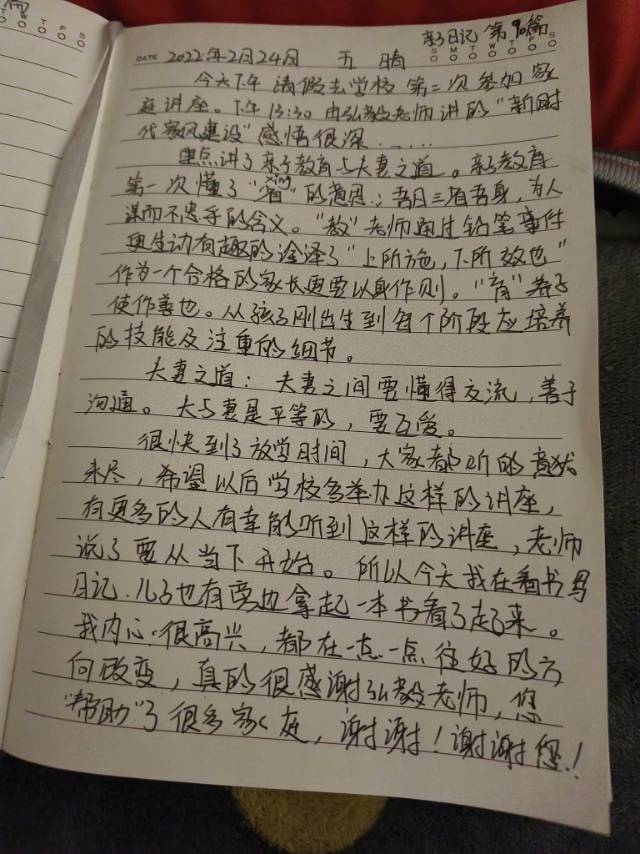 亲子日记 第90篇
DATE 2022年2月24日 五 晴
S M T W T F S
今天下午请假去学校第二次参加家
庭讲座。下午13:30由弘毅老师讲的“新时
代家风建设”感悟很深……
重点讲了亲子教育与夫妻之道。亲子教育
xing
第一次懂了“省”的意思；吾日三省吾身，为人
谋而不忠乎的含义。“教”老师通过铅笔事件
更生动有趣的诠译了“上所施，下所效也”
作为一个合格的家长更要以身作则。“育”养子
使作善也。从孩子刚出生到每个阶段应培养
的技能及注重的细节。
夫妻之道：夫妻之间要懂得交流，善于
沟通。夫与妻是平等的，要互爱。
很快到了放学时间，大家都听的意犹
未尽，希望以后学校多举办这样的讲座，
有更多的人有幸能听到这样的讲座，老师
说了要从当下开始。所以今天我在看书写
日记.儿子也在旁边拿起一本书看了起来。
我内心很高兴，都在一点一点往好的方
向改变，真的很感谢弘毅老师，您
“帮助”了很多家庭，谢谢！谢谢您！
T W T F S